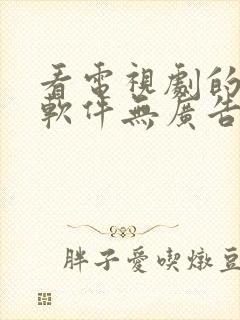 看電視劇的
軟件無廣告
胖子愛喫燉豆